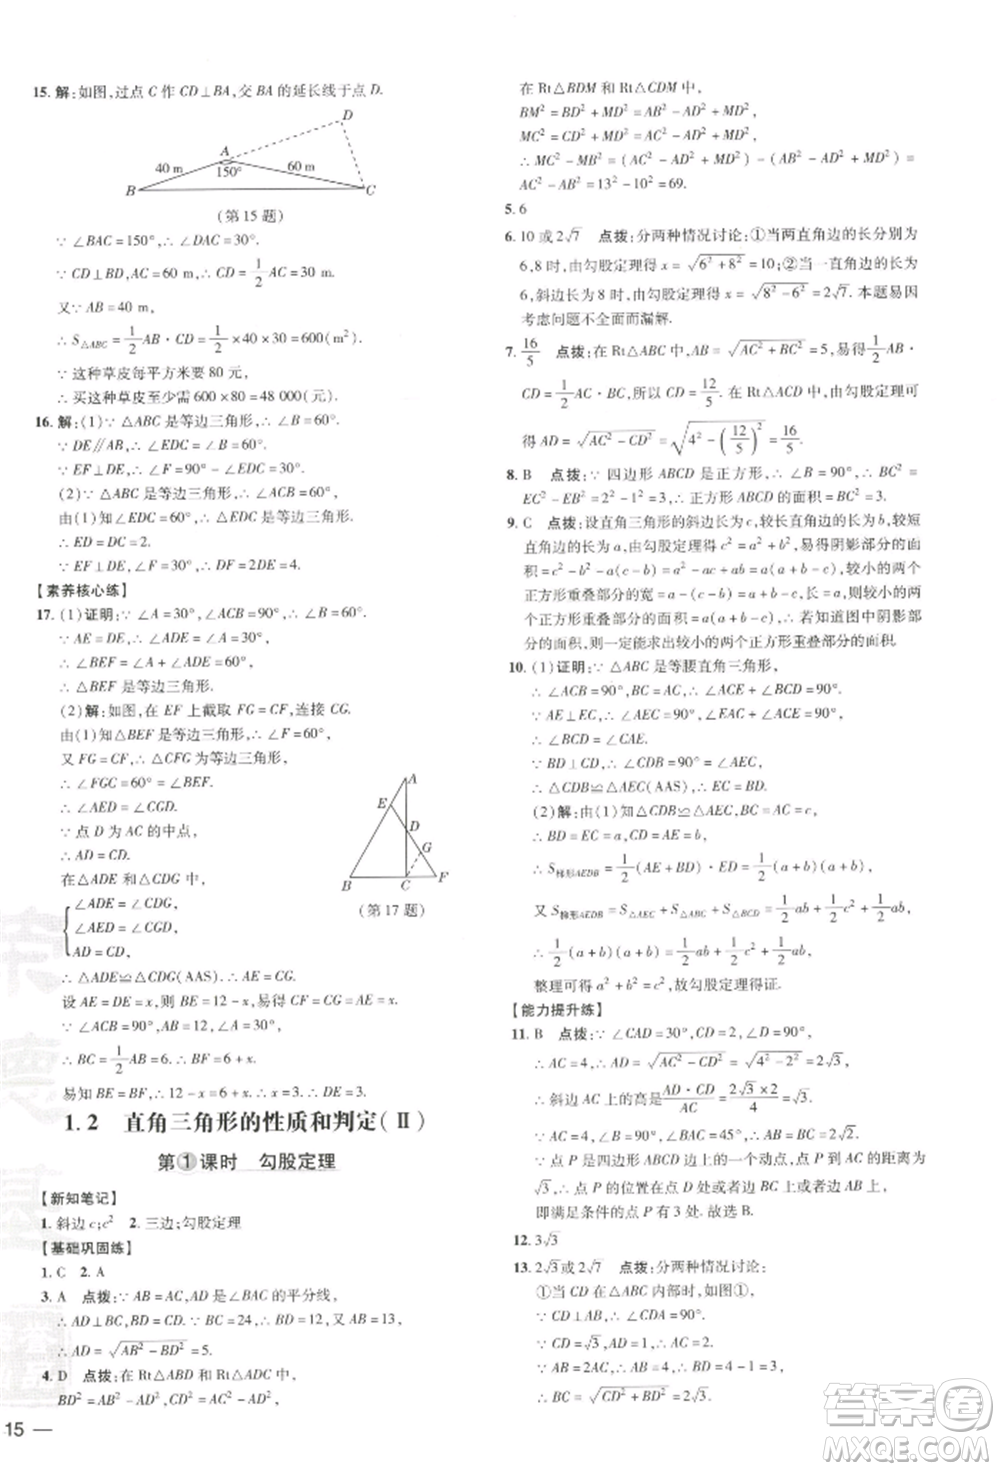 15. 解:如图,过点 C 作 CD⊥BA,交 BA 的延长线于点 D.
D
A
40 m
60 m
150°
B
C
(第 15 题)
∵ ∠BAC = 150°,∴ ∠DAC = 30°.
∵ CD⊥BD,AC = 60 m,∴ CD = 1/2 AC = 30 m.
又∵ AB = 40 m,
∴ S△ABC = 1/2 AB · CD = 1/2 ×40×30 = 600(m²).
∵ 这种草皮每平方米要 80 元,
∴ 买这种草皮至少需 600×80 = 48 000(元).
16. 解:(1)∵ △ABC 是等边三角形,∴ ∠B = 60°.
∵ DE∥AB,∴ ∠EDC = ∠B = 60°.
∵ EF⊥DE,∴ ∠F = 90° - ∠EDC = 30°.
(2)∵ △ABC 是等边三角形,∴ ∠ACB = 60°.
由(1)知∠EDC = 60°,∴ △EDC 是等边三角形,
∴ ED = DC = 2.
∵ EF⊥DE,∠F = 30°,∴ DF = 2DE = 4.
【素养核心练】
17. (1)证明:∵ ∠A = 30°,∠ACB = 90°,∴ ∠B = 60°.
∵ AE = DE,∴ ∠ADE = ∠A = 30°,
∴ ∠BEF = ∠A + ∠ADE = 60°,
∴ △BEF 是等边三角形.
(2)解:如图,在 EF 上截取 FG = CF,连接 CG.
由(1)知△BEF 是等边三角形,∴ ∠F = 60°.
又 FG = CF,∴ △CFG 是等边三角形,
∴ ∠FGC = 60° = ∠BEF.
∴ ∠AED = ∠CGD.
∵ 点 D 为 AC 的中点,
∴ AD = CD.
在△ADE 和△CDG 中,
∠ADE = ∠CDG,
∠AED = ∠CGD,
AD = CD,
A
E
D
G
B
C
F
(第 17 题)
∴ △ADE≌△CDG(AAS).∴ AE = CG.
设 AE = DE = x,则 BE = 12 - x,CF = CG = x.
∵ ∠ACB = 90°,AB = 12,∠A = 30°,
∴ BC = 1/2 AB = 6.∴ BF = 6 + x.
易知 BE = BF,∴ 12 - x = 6 + x,∴ x = 3,即 AE = 3.
1.2 直角三角形的性质和判定(Ⅱ)
第①课时 勾股定理
【新知笔记】
1. 斜边 c;c² 2. 三边;勾股定理
【基础巩固练】
1. C 2. A
3. A 点拨:∵ AB = AC,AD 是∠BAC 的平分线,
∴ AD⊥BC,BD = CD.∵ BC = 24,∴ BD = 12,
∴ AD = √(AB² - BD²) = 5.
4. D 点拨:在 Rt△ABD 和 Rt△ADC 中,
BD² = AB² - AD²,CD² = AC² - AD²,
15 —
在 Rt△BDM 和 Rt△CDM 中,
BM² = BD² + MD² = AB² - AD² + MD²,
MC² = CD² + MD² = AC² - AD² + MD²,
∴ MC² - MB² = (AC² - AD² + MD²) - (AB² - AD² + MD²) = AC² - AB² = 13² - 10² = 69.
5. 6
6. 10 或 2√7 点拨:分两种情况讨论:①当两直角边的长分别为
6,8 时,由勾股定理得 x = √(6² + 8²) = 10;②当一直角边的长为
6,斜边长为 8 时,由勾股定理得 x = √(8² - 6²) = 2√7. 本题易因
考虑问题不全面而漏解.
7. 16/5 点拨:在 Rt△ABC 中,AB = √(AC² + BC²) = 5,易求得 1/2 AB ·
CD = 1/2 AC · BC,所以 CD = 12/5. 在 Rt△ACD 中,由勾股定理可
得 AD = √(AC² - CD²) = √(4² - (12/5)²) = 16/5.
8. B 点拨:∵ 四边形 ABCD 是正方形,∴ ∠B = 90°,∴ BC² =
EC² - EB² = 2² - 1² = 3,∴ 正方形 ABCD 的面积 = BC² = 3.
9. C 点拨:设直角三角形的斜边长为 c,较长直角边的长为 b,较短
直角边的长为 a,由勾股定理得 c² = a² + b²,易得阴影部分的面
积 = c² - b² - a(c - b) = a² - ac + ab = a(a + b - c),较小的两个
正方形重叠部分的宽 = a - (c - b) = a + b - c,长 = a,则较小的两
个正方形重叠部分的面积 = a(a + b - c),∴ 若知道图中阴影部
分的面积,则一定能求出较小的两个正方形重叠部分的面积.
10. (1)证明:∵ △ABC 是等腰直角三角形,
∴ ∠ACB = 90°,AC = BC,∴ ∠ACE + ∠BCD = 90°.
∵ AE⊥EC,∴ ∠ACE + ∠CAE = 90°,
∴ ∠BCD = ∠CAE.
∵ BD⊥CD,∴ ∠CDB = 90° = ∠AEC,
∴ △CDB≌△AEC(AAS).
(2)解:由(1)知△CDB≌△AEC,BC = AC = c,
∴ BD = EC = a,CD = AE = b,
∴ S梯形AEDB = 1/2 (AE + BD) · CD = 1/2 (a + b)(a + b),
又 S梯形AEDB = S△AEC + S△ACB + S△BCD = 1/2 ab + 1/2 c² + 1/2 ab,
∴ 1/2 (a + b)(a + b) = 1/2 ab + 1/2 c² + 1/2 ab,
整理可得 a² + b² = c²,故勾股定理得证.
【能力提升练】
11. B 点拨:∵ ∠CAD = 30°,∠ACP = 90°,CD = 2,
∴ AC = 4,∴ AD = √(AC² - CD²) = √(4² - 2²) = 2√3,
∴ △ACD 中 AC 边上的高是 (AD · CD)/AC = (2√3 × 2)/4 = √3. ∵ ∠ACB = 90°,∴ 当点 P
在 BC 上时,满足点 P 到 AC 的距离
√3,∴ 点 P 的位置在点 D 处或 AB 上或 BC 上,
即满足条件的点 P 有 3 处,故选 B.
12. 3√3
13. 2√3或 2√7 点拨:分两种情况讨论:
①当 CD 在△ABC 内部时,如图①.
∵ CD⊥AB,∴ ∠CDA = 90°.
∵ CD = √3,∠A = 30°,∴ AC = 2√3.
答案圈
MXQE.COM